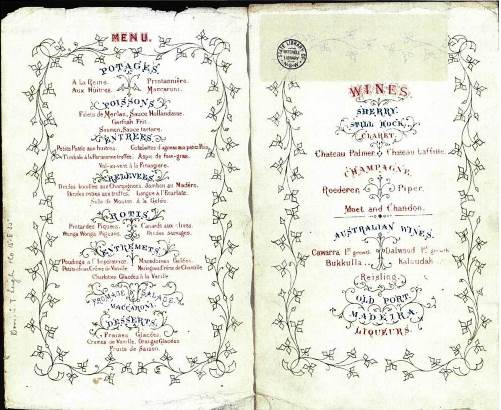 MENU.
POTAGES.
A La Reine. Printannière.
Aux Huitres. Maccaroni.
POISSONS.
Filets de Merlan, Sauce Hollandaise.
Garfish Frit.
Saumon, Sauce tartare.
ENTRÉES
Petits Patés aux huitres. Cotelettes d'agneau aux petits Pois.
Timbale à la Parisienne truffée. Aspic de foie-gras.
Vol-au-vent à la Financière.
RELEVÉES
Dindes bouillies aux Champignons. Jambon au Madère.
Dindes roties aux truffes. Langue à l'Ecarlate.
Selle de Mouton à la Gelée.
ROTIS.
Pintardes Piquées. Canards aux olives.
Wonga Wonga Piqués. Dindes sauvages.
ENTREMETS.
Poudings à l'Impératrice. Macedoines Gelées.
Petits choux Crême de Vanille. Meringues Crême de Chantilly
Charlottes Glacées à la Vanille
FROMAGE SALADE.
MACCARONI.
DESSERTS.
Fraises Glacées
Cremes de Vanille. Oranges Glacées
Fruits de Saison.
WINES.
SHERRY.
STILL HOCK.
CLARET.
Chateau Palmer. Chateau Laffitte.
CHAMPAGNE.
Roederer. Piper.
Moet and Chandon.
AUSTRALIAN WINES.
Cawarra 1st growth Dalwood 1st growth
Bukkulla Kaludah
Reisling.
OLD PORT.
MADEIRA.
LIQUEURS.